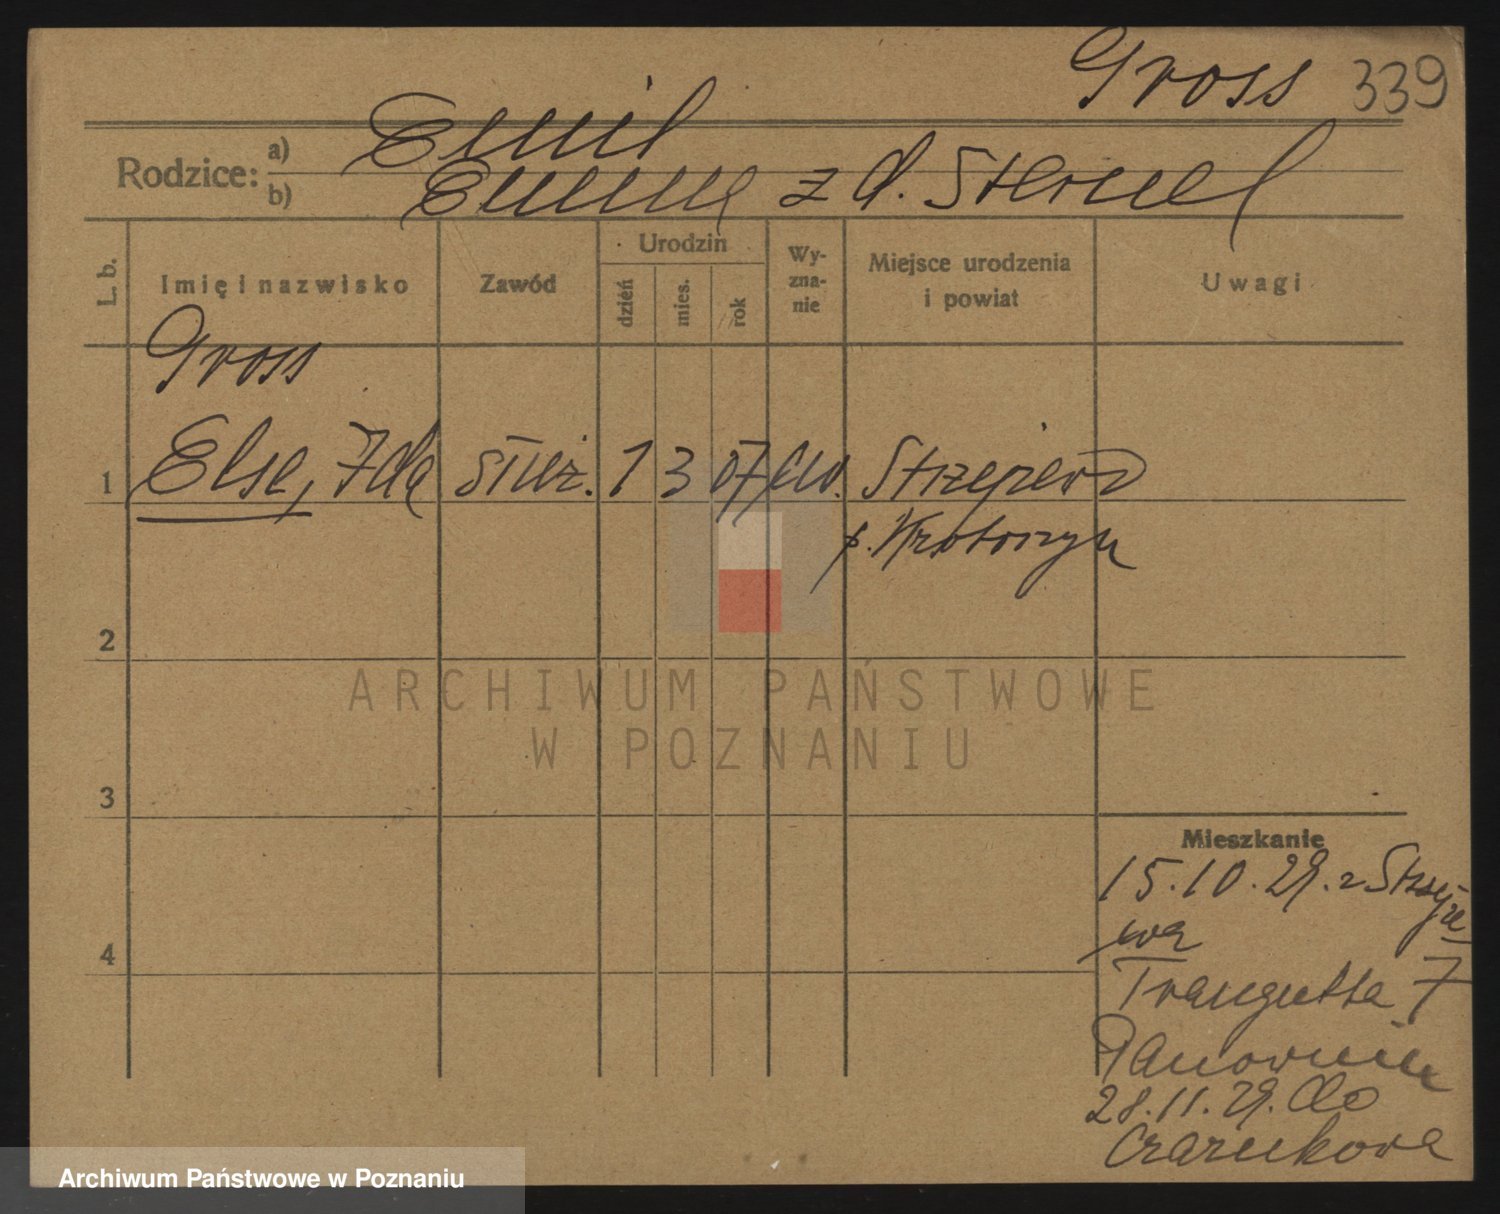 Gross 339
Rodzice: a) Emil
b) Emma z d. Stermel
L. b.
Imię i nazwisko
Zawód
Urodzin
dzień
mies.
rok
Wy-
zna-
nie
Miejsce urodzenia
i powiat
Uwagi
Gross
1 Else, Ida służ. 1 3 07 ew. Strzejewo
p. Krotoszyn
2
ARCHIWUM PAŃSTWOWE
W POZNANIU
3
Mieszkanie
15.10.29. z Strzeje
wa
4
Traugutta 7
28.11.29. do
Czarnkowa
Archiwum Państwowe w Poznaniu